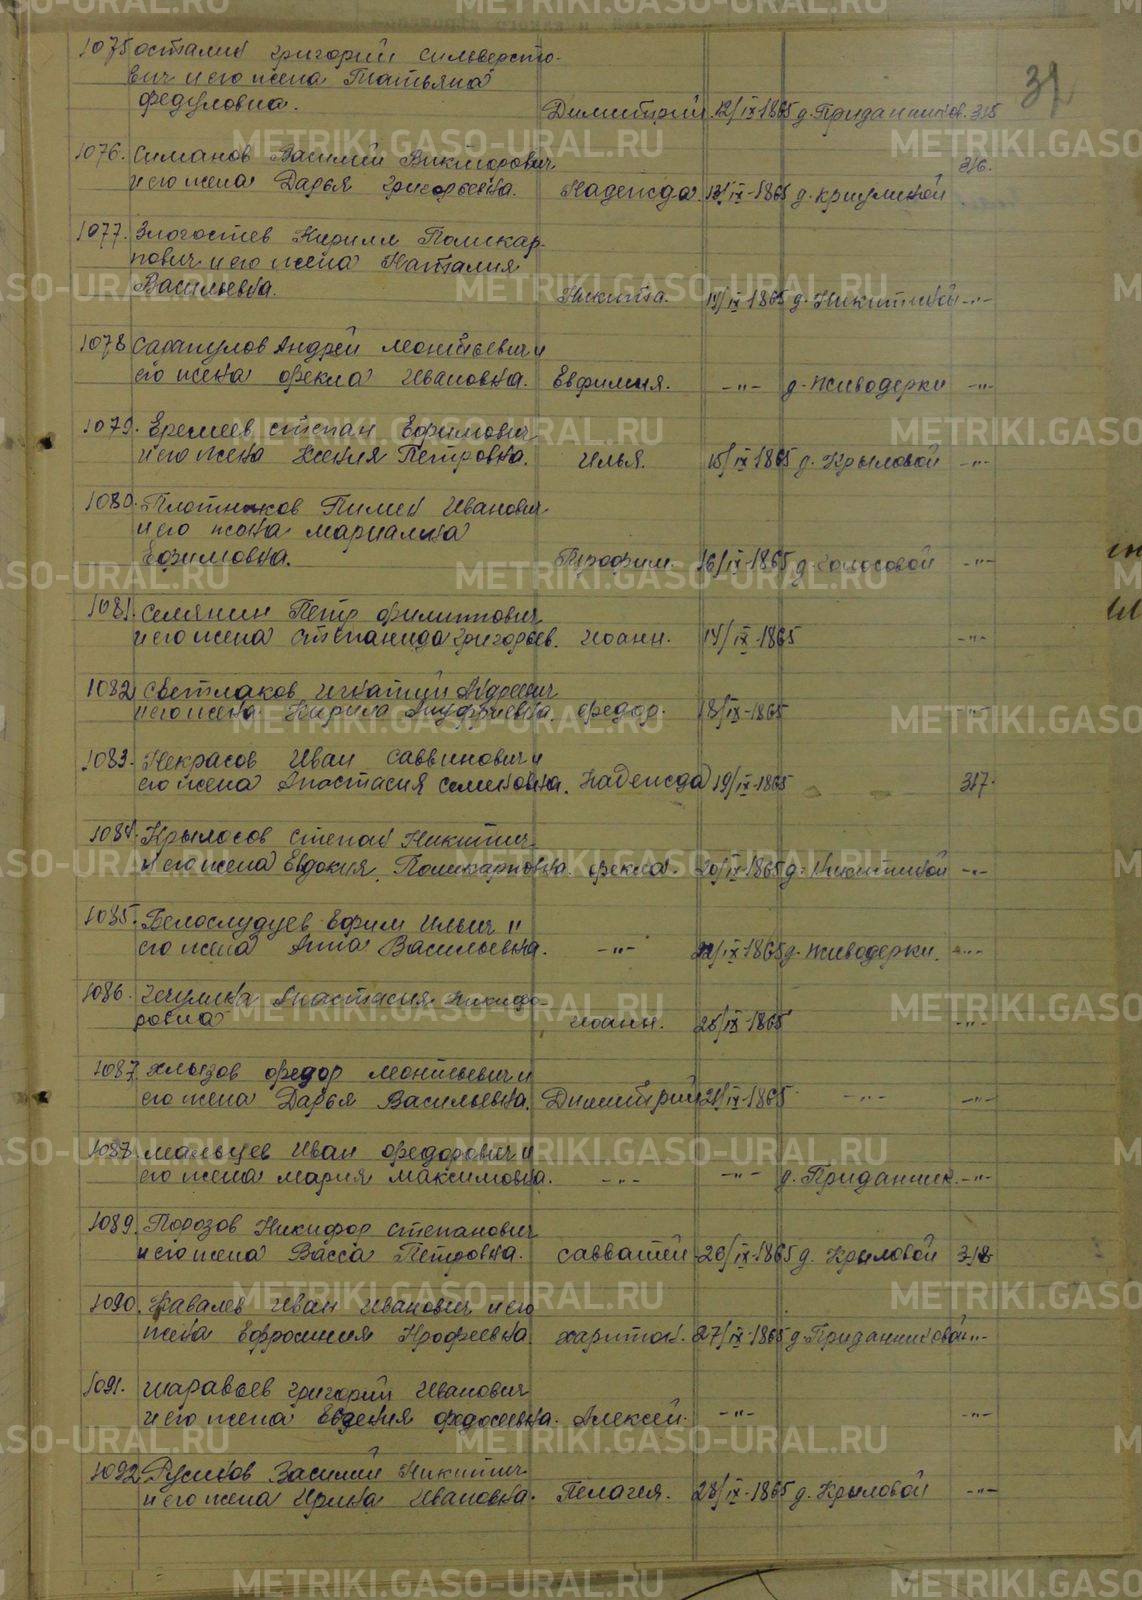 31
1075 Осталин Григорий Сильверсто-
вич и его жена Татьяна
Федуловна. Димитрий. 12/IX-1865 д. Приданников. 315
1076. Симанов Василий Викторович 316.
и его жена Дарья Григорьевна. Надежда 13/IX-1865 д. Криулиной
1077. Злогостев Кирилл Поликар-
пович и его жена Наталия
Васильевна. Никита. 14/IX-1865 д. Никитиной -"-
1078 Сарапулов Андрей Леонтьевич и
его жена Фекла Ивановна. Евфимия. -"- д. Живодерки -"-
1079. Еремеев Степан Ефимович
и его жена Ксения Петровна. Илья. 15/IX-1865 д. Крыловой -"-
1080. Плотников Пимен Иванович
и его жена Мариамна
Ефимовна. Трофим. 16/IX-1865 д. Колосовой -"-
1081. Семянин Петр Филиппович
и его жена Степанида Григорьев. Иоанн. 17/IX-1865 -"-
1082 Светлаков Игнатий Андреевич
и его жена Кирила Ануфриевна. Федор. 18/IX-1865 -"-
1083. Некрасов Иван Саввинович и
его жена Анастасия Семеновна. Надежда 19/IX-1865 317.
1084. Крылосов Степан Никитич
и его жена Евдокия Поликарповна. Фекла. 20/IX-1865 д. Никитиной -"-
1085. Белослудцев Ефим Ильич и
его жена Анна Васильевна. -"- 22/IX-1865 д. Живодерки. -"-
1086. Чечулина Анастасия Никифо-
ровна Иоанн. 25/IX-1865 -"-
1087. Хлызов Федор Леонтьевич и
его жена Дарья Васильевна. Димитрий 21/IX-1865 -"- -"-
1088. Мальцев Иван Федорович и
его жена Мария Максимовна. -"- -"- д. Приданник. -"-
1089. Порозов Никифор Степанович
и его жена Васса Петровна. Савватей 26/IX-1865 д. Крыловой 318
1090. Шавалев Иван Иванович и его
жена Ефросиния Ерофеевна. Харитон. 27/IX-1865 д. Приданниковой -"-
1091. Шаравьев Григорий Иванович
и его жена Евдокия Федосеевна. Алексей. -"- -"-
1092 Русинов Василий Никитич
и его жена Ирина Ивановна. Пелагия. 28/IX-1865 д. Крыловой -"-
METRIKI.GASO-URAL.RU